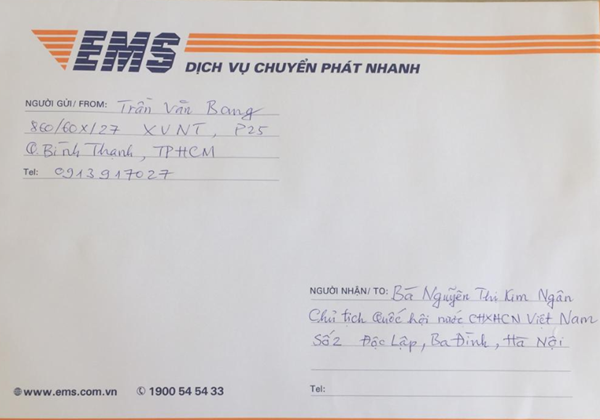 EMS
DỊCH VỤ CHUYỂN PHÁT NHANH
NGƯỜI GỬI/ FROM: Trần Văn Bang
860/60X/27 XVNT, P25
Q. Bình Thạnh, TPHCM
Tel: 0913917027
NGƯỜI NHẬN/ TO: Bà Nguyễn Thị Kim Ngân
Chủ tịch Quốc hội nước CHXHCN Việt Nam
Số 2 Độc Lập, Ba Đình, Hà Nội
Tel:
www.ems.com.vn 1900 54 54 33